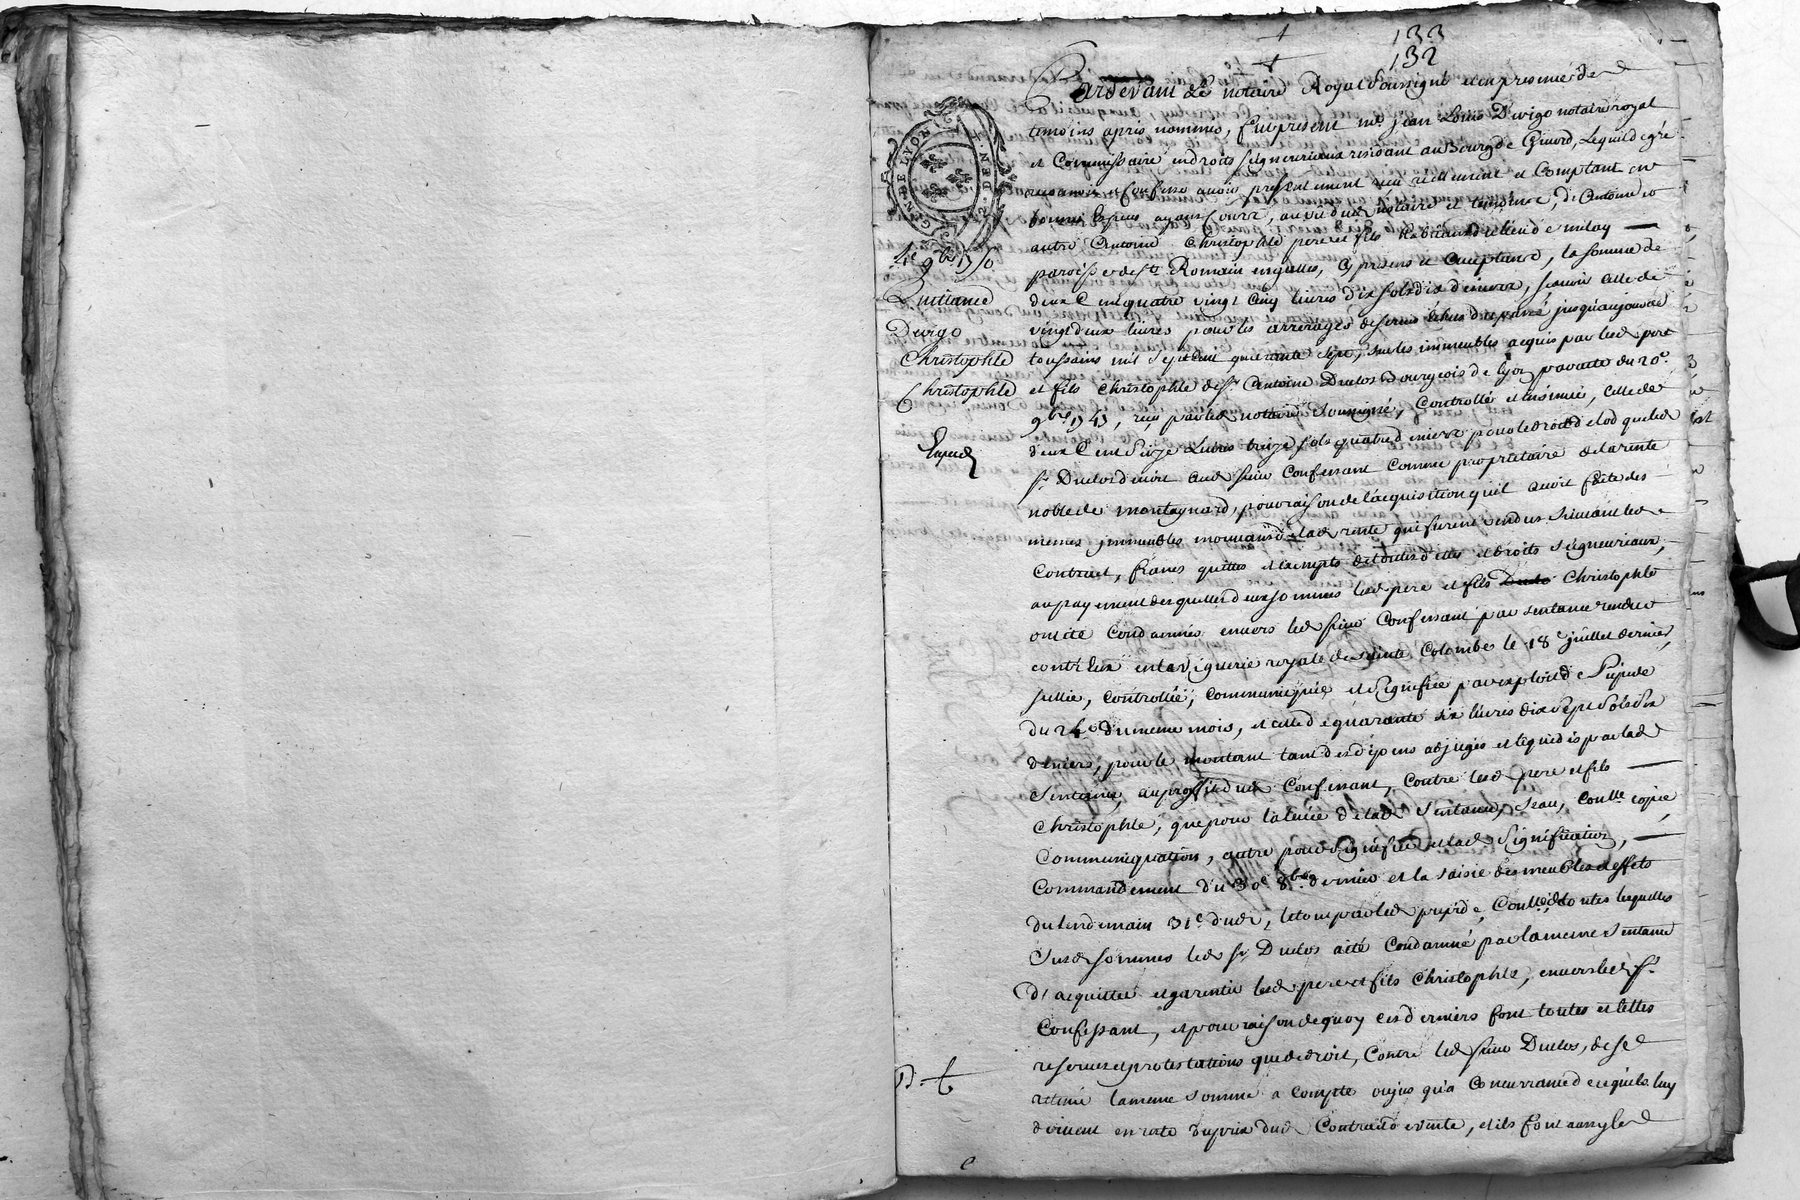 133
132
Pardevant Le notaire Royal soussigné et en presence des
temoins apres nommés, fut present me jean Louis Dervigo notaire royal
et Commissaire en droits seigneuriaux residant au Bourg de Givord, Lequel de gré
reconnoit et Confesse avoir presentement reçu réellement et Comptant en
bonnes Especes ayant Cours, au vû dud notaire et temoins, d'Antoine et
autre Antoine Christophle pere et fils habitans du lieu de milay
paroisse de St Romain en galles, Cy presens et acceptans, la somme de
deux Cent quatre vingt Cinq livres dix sols dix deniers, sçavoir celle de
vingt deux livres pour les arrerages de servis échus du passé jusqu'au jour de
toussains mil sept cent quarante sept, sur les immeubles acquis par lesd pere
et fils Christophle de sr Antoine Duclos Bourgeois de lyon par acte du 20e
9bre 1745, reçu par led notaire soussigné, Controllé et insinué, celle de
deux Cent seize Livres treize sols quatre deniers pour le droit de lod que led
sr Duclos devoit aud sieur Confessant comme proprietaire de la rente
noble de montagnard, pour raison de l'acquisition qu'il avoit faite des
memes immeubles mouvans de lad rente qui furent vendus suivant led
Contract, francs quittes et exempts de toutes dettes et droits seigneuriaux,
au payement desquelles deux sommes lesd pere et fils Christophle
ont été condamnés envers led sieur Confessant par sentance rendue
contr'Eux en la viguerie royale de sainte Colombe le 18e juillet dernier,
scellée, controllée, communiquée et signifiée par exploit de Pupide
du 24e du meme mois, et celle de quarante six livres dix sept sols six
deniers, pour le montant tant des dépens adjugés et liquidés par lad
sentance, au proffit dud Confessant, contre lesd pere et fils
Christophle, que pour la levée de lad sentance, sceau, conlle copie
Communiquation, autre pour signifier et lad signification,
Commandement du 30e 8bre dernier et la saisie des meubles et effets
du lendemain 31e dud, le tout par led pupide, Conllé, de toutes lesquelles
susd sommes led sr Duclos a été condamné par la meme sentance
d'acquitter et garentir lesd pere et fils Christophle, envers led sr
Confessant, et pour raison de quoy ces derniers font toutes et telles
reserves et protestations que de droit, contre led sieur Duclos, de se
retenir la meme somme a compte ou jus qu'a concurrance de ce qu'ils luy
doivent en reste du prix dud Contract de vente, et ils font aussy led
GEN. DE LYON
2. DEN.
4e 9bre 1750
Quittance
Dervigo
Christophle
Christophle
Exped